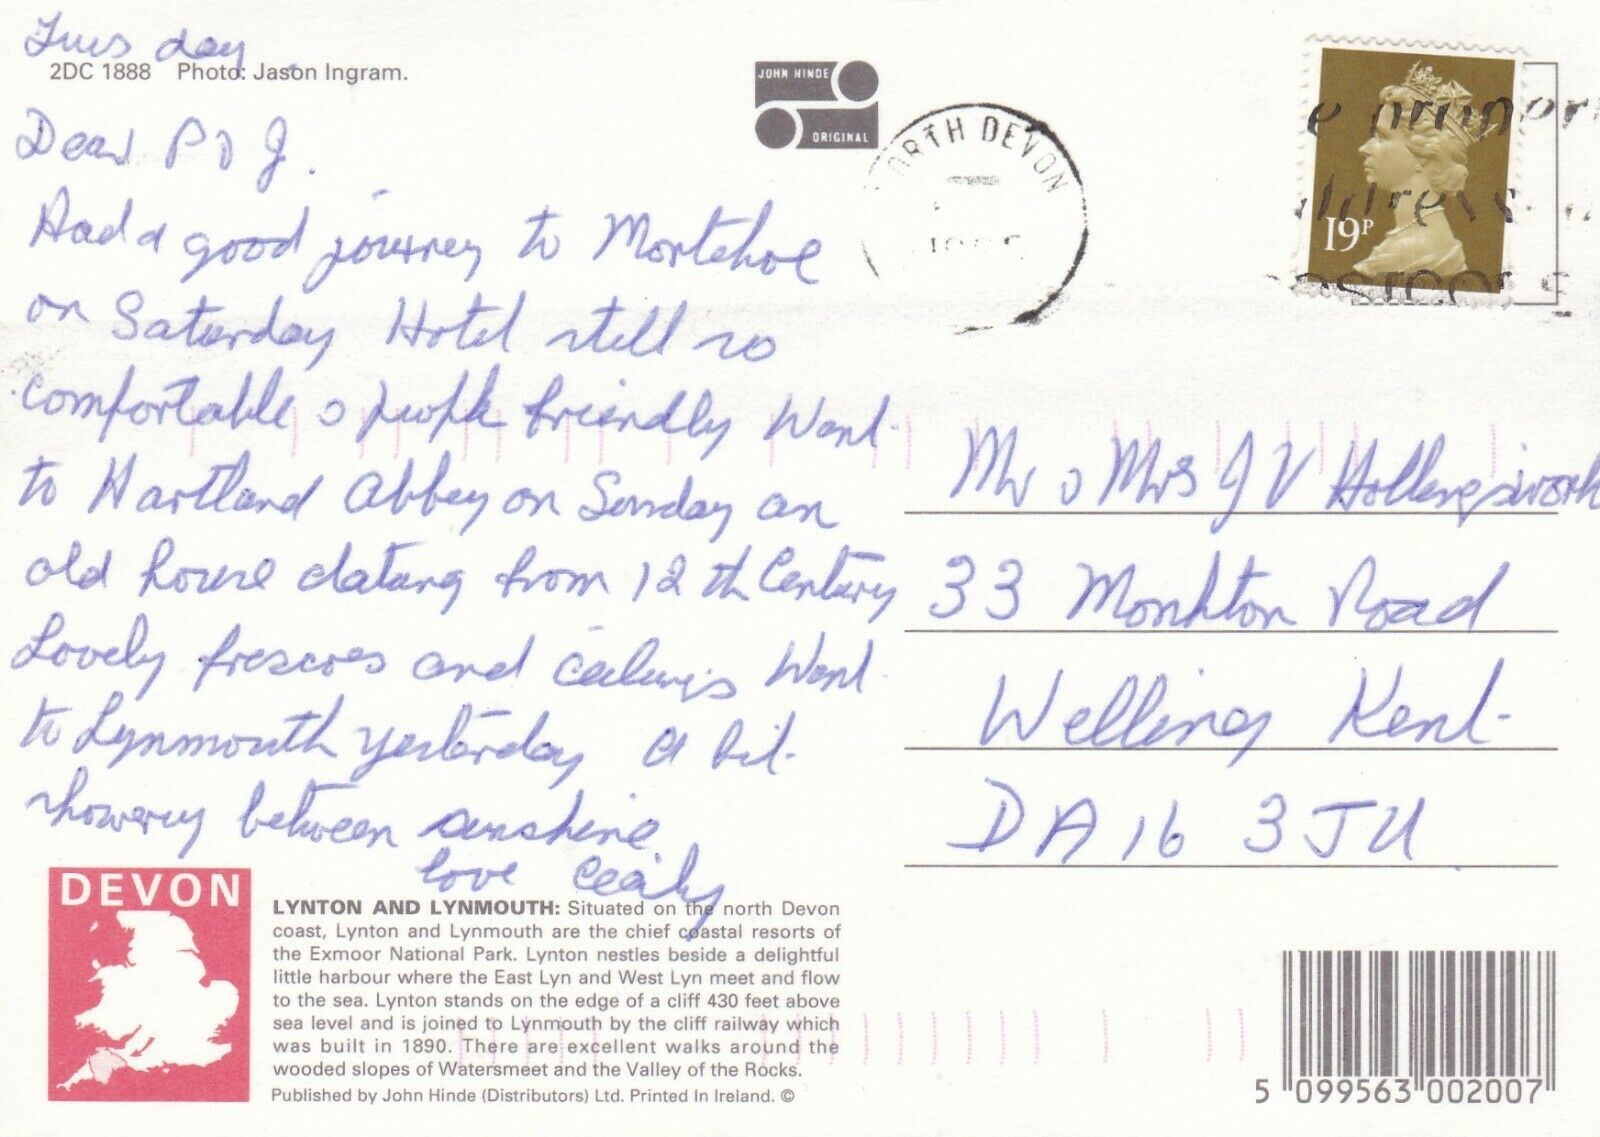 Tuesday
2DC 1888 Photo: Jason Ingram.
JOHN HINDE
ORIGINAL
ORTH DEVON
19P
Dear P & J.
Had a good journey to Mortehoe
on Saturday Hotel still so
comfortable & people friendly Went
to Hartland Abbey on Sunday an
old house dating from 12th Century
Lovely frescoes and ceilings Went
to Lynmouth yesterday a bit
showery between sunshine
love Cecily
Mr & Mrs J V Hollingsworth
33 Monkton Road
Welling Kent
DA16 3JU
DEVON
LYNTON AND LYNMOUTH: Situated on the north Devon
coast, Lynton and Lynmouth are the chief coastal resorts of
the Exmoor National Park. Lynton nestles beside a delightful
little harbour where the East Lyn and West Lyn meet and flow
to the sea. Lynton stands on the edge of a cliff 430 feet above
sea level and is joined to Lynmouth by the cliff railway which
was built in 1890. There are excellent walks around the
wooded slopes of Watersmeet and the Valley of the Rocks.
Published by John Hinde (Distributors) Ltd. Printed In Ireland. ©
5 099563 002007